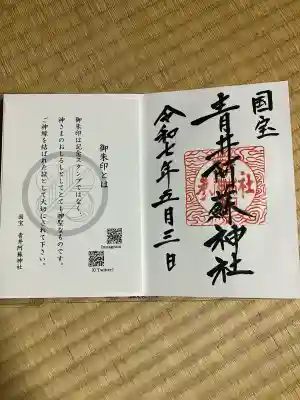 国宝
青井阿蘇神社
令和七年五月三日
御朱印とは
御朱印は記念スタンプではなく、
神さまのおしるしとしてとても神聖なものです。
ご神縁を結ばれた証として大切にされて下さい。
国宝 青井阿蘇神社
Instagram
X(Twitter)